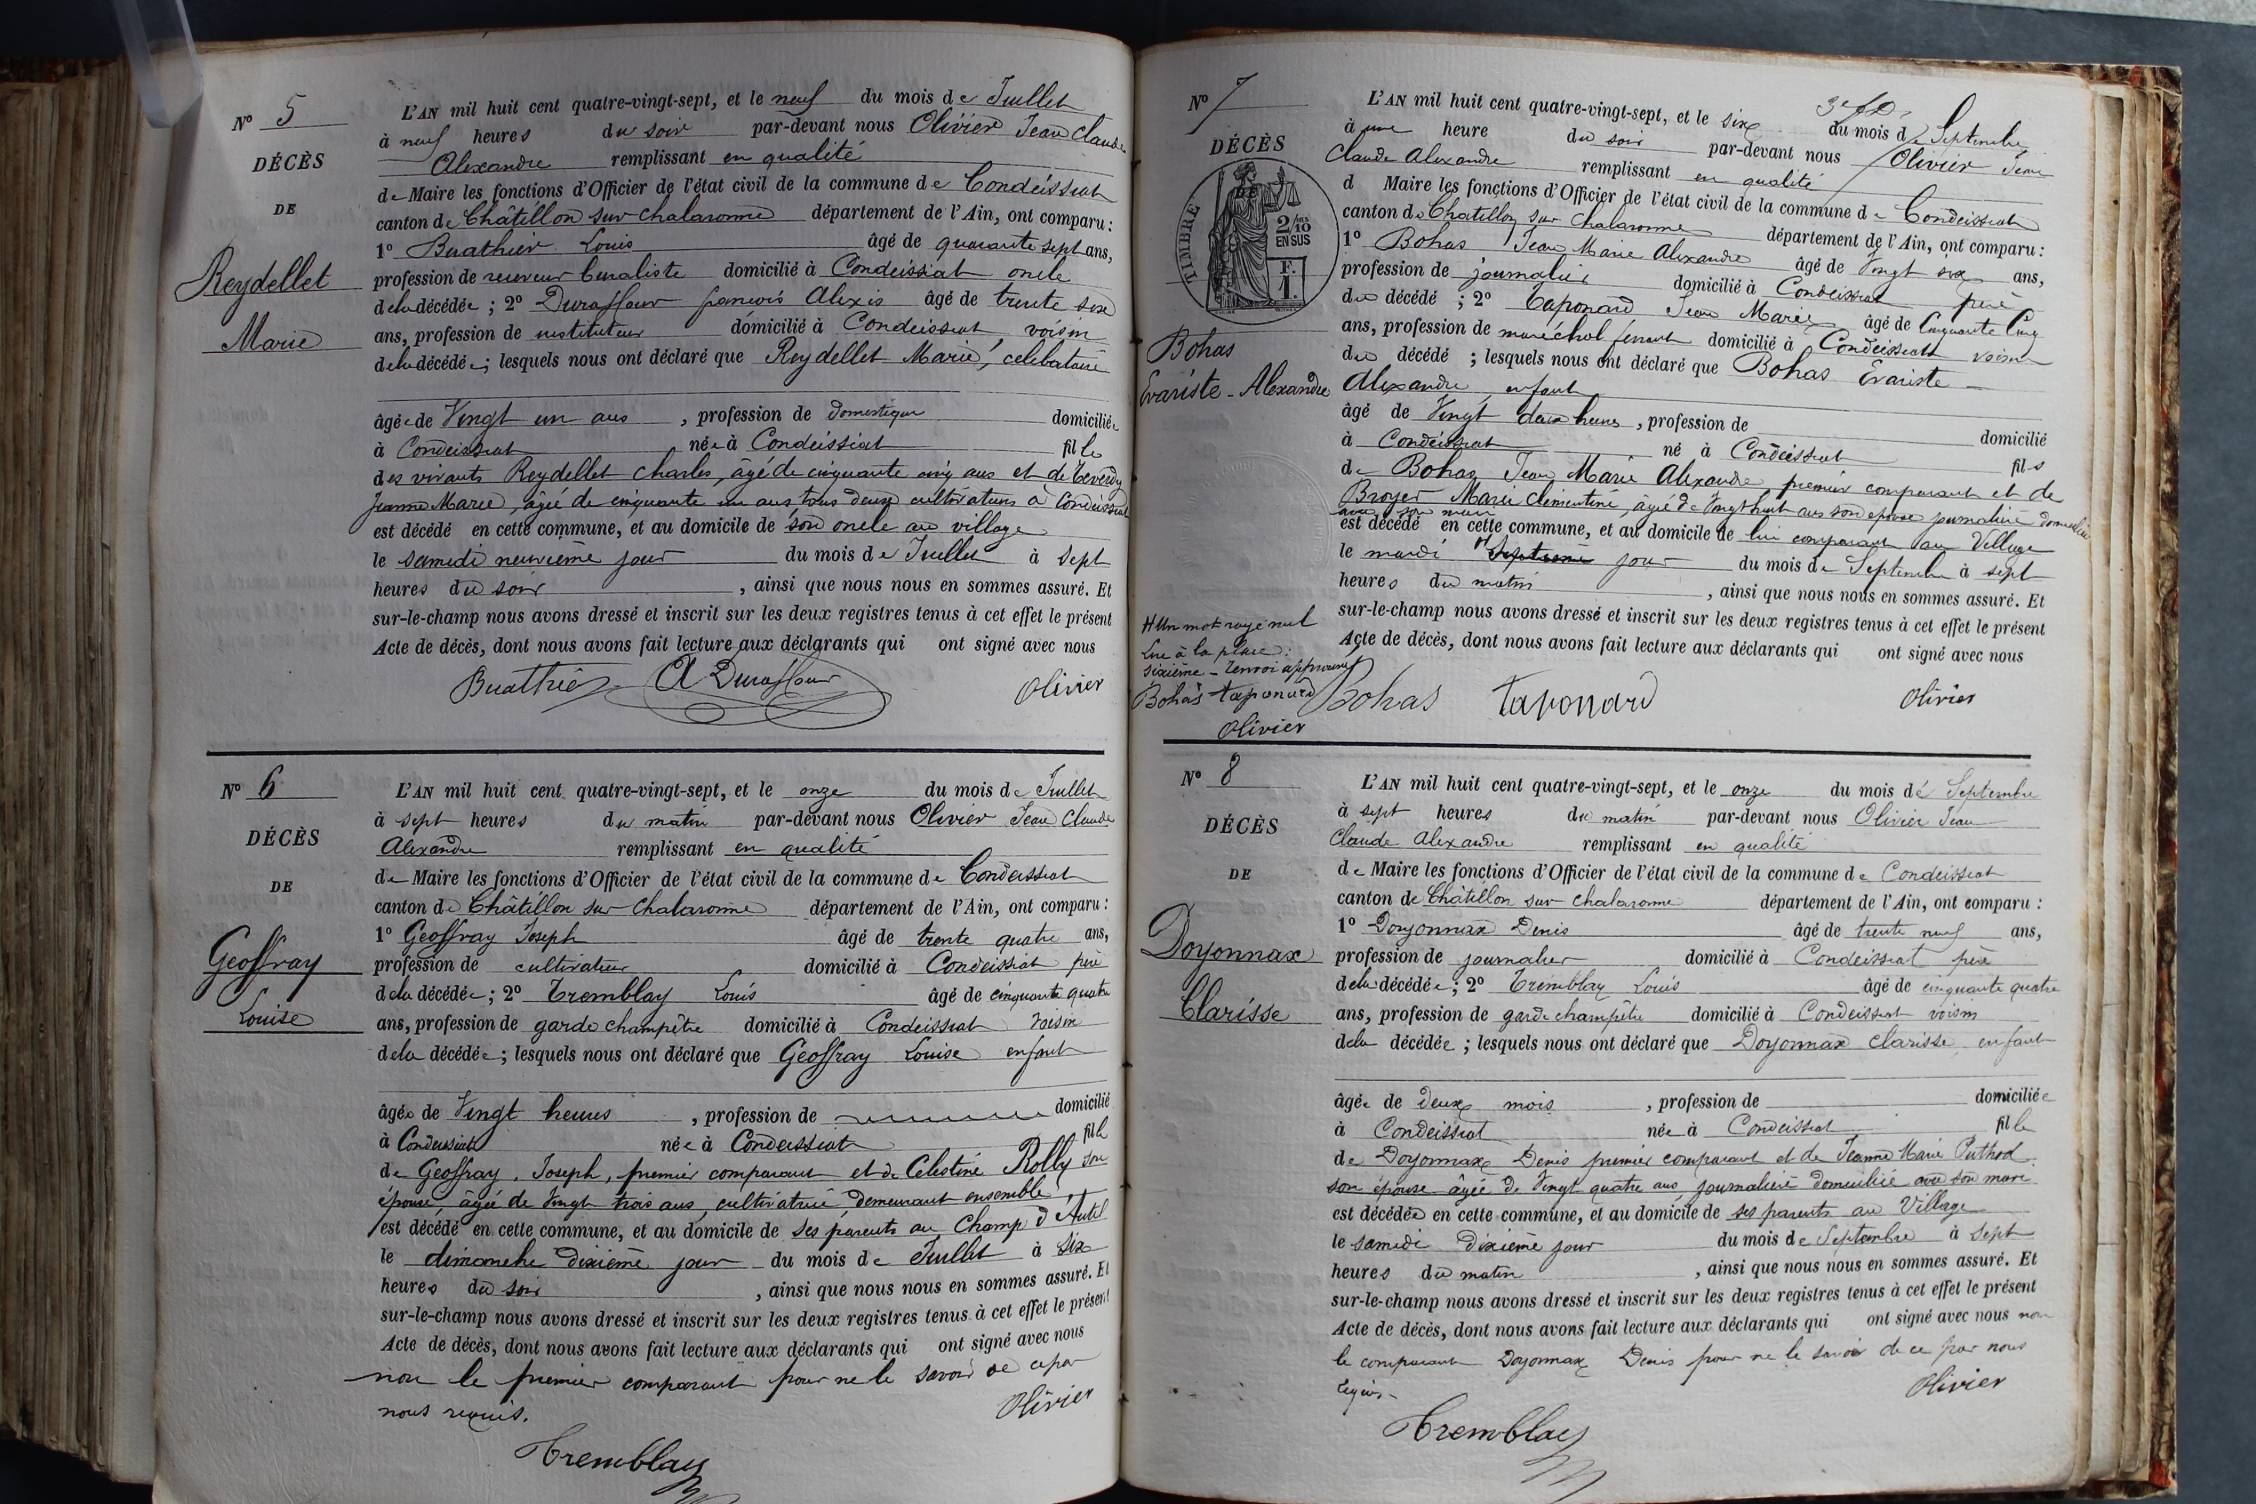 N° 5
DÉCÈS
DE
Reydellet
Marie
L'AN mil huit cent quatre-vingt-sept, et le neuf du mois de Juillet
à neuf heures du soir par-devant nous Olivier Jean Claude
Alexandre remplissant en qualité
de Maire les fonctions d'Officier de l'état civil de la commune de Condeissiat
canton de Châtillon sur Chalaronne département de l'Ain, ont comparu :
1° Buathier Louis âgé de quarante sept ans,
profession de receveur buraliste domicilié à Condeissiat oncle
de la décédée ; 2° Duraffour françois Alexis âgé de trente six
ans, profession de instituteur domicilié à Condeissiat voisin
de la décédée ; lesquels nous ont déclaré que Reydellet Marie, celebataire
âgée de Vingt un ans , profession de domestique domiciliée
à Condeissiat née à Condeissiat fille
des vivants Reydellet Charles, âgé de cinquante cinq ans et de
Jeanne Marie, âgée de cinquante un ans tous deux cultivateurs à Condeissiat
est décédé en cette commune, et au domicile de son oncle au village
le samedi neuvième jour du mois de Juillet à sept
heures du soir , ainsi que nous nous en sommes assuré. Et
sur-le-champ nous avons dressé et inscrit sur les deux registres tenus à cet effet le présent
Acte de décès, dont nous avons fait lecture aux déclarants qui ont signé avec nous
Buathier A Duraffour Olivier
N° 6
DÉCÈS
DE
Geoffray
Louise
L'AN mil huit cent quatre-vingt-sept, et le onze du mois de Juillet
à sept heures du matin par-devant nous Olivier Jean Claude
Alexandre remplissant en qualité
de Maire les fonctions d'Officier de l'état civil de la commune de Condeissiat
canton de Châtillon sur Chalaronne département de l'Ain, ont comparu :
1° Geoffray Joseph âgé de trente quatre ans,
profession de cultivateur domicilié à Condeissiat père
de la décédée ; 2° Tremblay Louis âgé de cinquante quatre
ans, profession de garde champêtre domicilié à Condeissiat voisin
de la décédée ; lesquels nous ont déclaré que Geoffray Louise enfant
âgée de Vingt heures , profession de domicilié
à Condeissiat née à Condeissiat fille
de Geoffray, Joseph, premier comparant et de Celestine Rolly son
épouse, âgée de vingt trois ans, cultivatrice demeurant ensemble,
est décédé en cette commune, et au domicile de ses parents au Champ d'Autel
le dimanche dixième jour du mois de Juillet à six
heures du soir , ainsi que nous nous en sommes assuré. Et
sur-le-champ nous avons dressé et inscrit sur les deux registres tenus à cet effet le présent
Acte de décès, dont nous avons fait lecture aux déclarants qui ont signé avec nous
non le premier comparant pour ne le savoir de ce par
nous requis.
Olivier
Tremblay
N° 7
DÉCÈS
TIMBRE
2/10
EN SUS
F.
1.
Bohas
Evariste-Alexandre
L'AN mil huit cent quatre-vingt-sept, et le six du mois de Septembre
à une heure du soir par-devant nous Olivier Jean
Claude Alexandre remplissant en qualité
d Maire les fonctions d'Officier de l'état civil de la commune de Condeissiat
canton de Chatillon sur Chalaronne département de l'Ain, ont comparu :
1° Bohas Jean Marie Alexandre âgé de Vingt six ans,
profession de journalier domicilié à Condeissiat père
du décédé ; 2° Taponard Jean Marie âgé de Cinquante Cinq
ans, profession de maréchal ferrant domicilié à Condeissiat voisin
du décédé ; lesquels nous ont déclaré que Bohas Evariste
Alexandre enfant
âgé de Vingt deux heures , profession de domicilié
à Condeissiat né à Condeissiat fils
de Bohas Jean Marie Alexandre, premier comparant et de
Broyer Marie Clementine, âgée de Vingt huit ans son épouse journalière domiciliée
avec son mari
est décédé en cette commune, et au domicile de lui comparant au Village
le mardi Septieme jour du mois de Septembre à sept
heures du matin , ainsi que nous nous en sommes assuré. Et
sur-le-champ nous avons dressé et inscrit sur les deux registres tenus à cet effet le présent
Acte de décès, dont nous avons fait lecture aux déclarants qui ont signé avec nous
Un mot rayé nul
Lire à la place :
sixième - renvoi approuvé
Bohas Taponard
Olivier
Bohas Taponard Olivier
N° 8
DÉCÈS
DE
Doyonnax
Clarisse
L'AN mil huit cent quatre-vingt-sept, et le onze du mois de Septembre
à sept heures du matin par-devant nous Olivier Jean
Claude Alexandre remplissant en qualité
de Maire les fonctions d'Officier de l'état civil de la commune de Condeissiat
canton de Châtillon sur Chalaronne département de l'Ain, ont comparu :
1° Doyonnax Denis âgé de trente neuf ans,
profession de journalier domicilié à Condeissiat père
de la décédée ; 2° Tremblay Louis âgé de cinquante quatre
ans, profession de garde champêtre domicilié à Condeissiat voisin
de la décédée ; lesquels nous ont déclaré que Doyonnax Clarisse enfant
âgée de deux mois , profession de domiciliée
à Condeissiat née à Condeissiat fille
de Doyonnax Denis premier comparant et de Jeanne Marie Puthod
son épouse âgée de Vingt quatre ans journalière domiciliée avec son mari
est décédée en cette commune, et au domicile de ses parents au Village
le samedi dixième jour du mois de Septembre à sept
heures du matin , ainsi que nous nous en sommes assuré. Et
sur-le-champ nous avons dressé et inscrit sur les deux registres tenus à cet effet le présent
Acte de décès, dont nous avons fait lecture aux déclarants qui ont signé avec nous non
le comparant Doyonnax Denis pour ne le savoir de ce par nous
requis-
Olivier
Tremblay